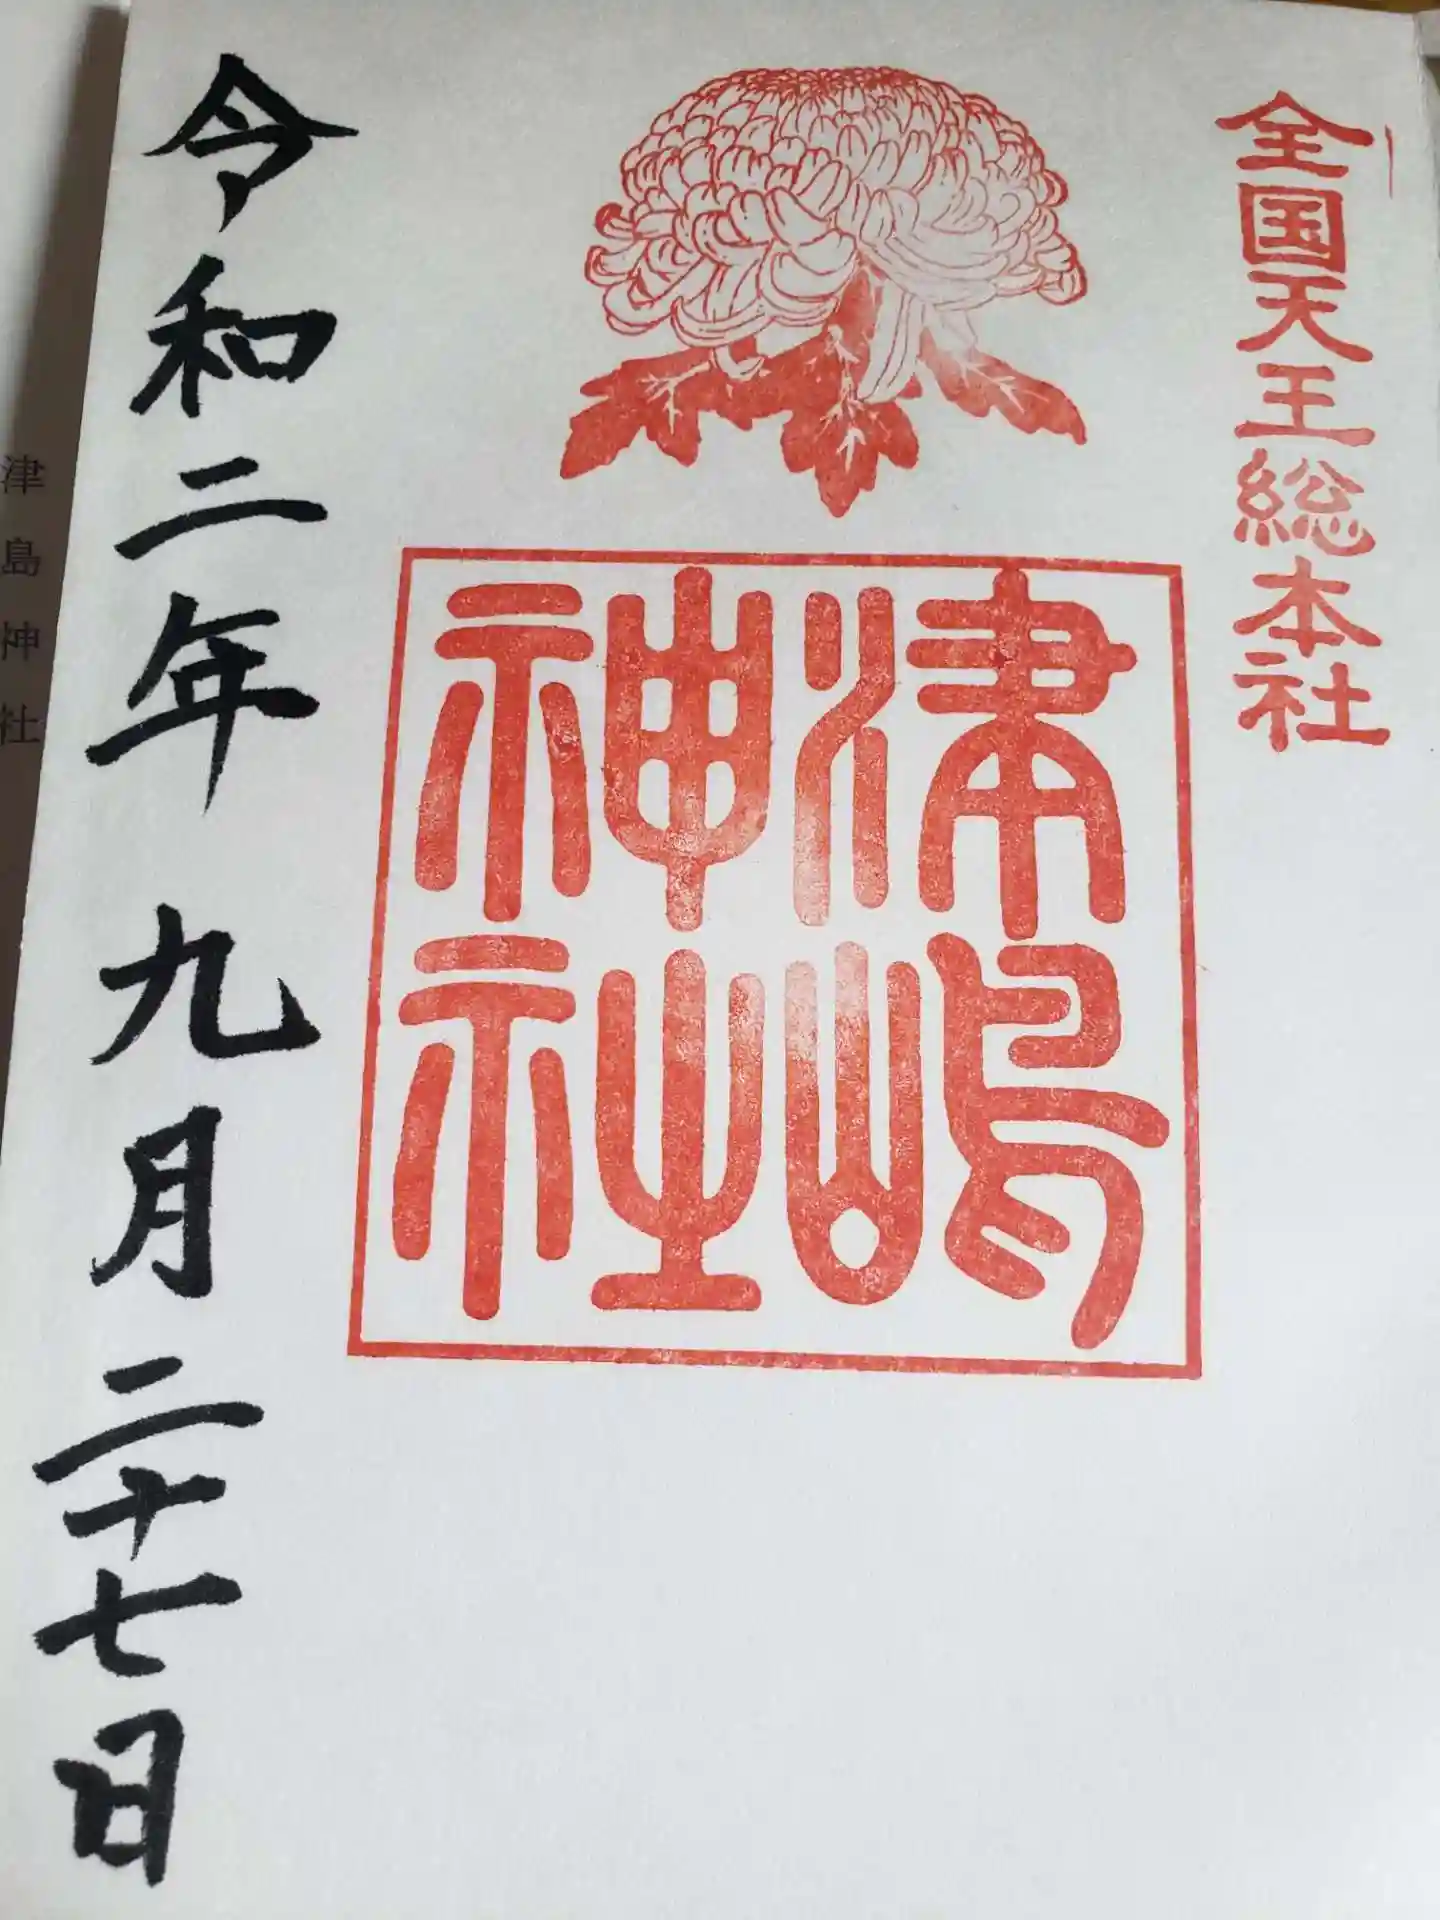 全国天王総本社
津嶋
神社
令和二年 九月二十七日
津島神社